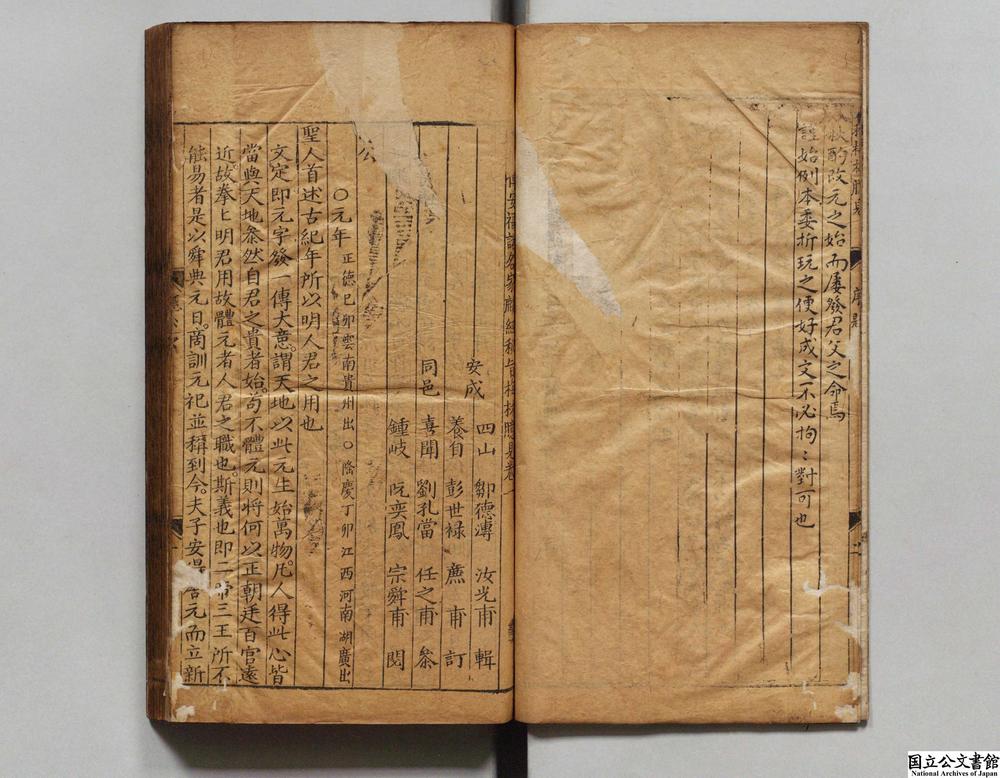 秋酌改元之始而屡發君父之命焉
謹始例本委折玩之便好成文不必拘〻對可也
安成
四山 鄒德溥 汝光甫 輯
養自 彭世禄 廌甫 訂
同邑
喜聞 劉孔當 任之甫 叅
鍾岐 阮奕鳳 宗舜甫 閱
公
〇元年 正德己卯雲南貴州出〇隆慶丁卯江西河南湖廣出
聖人首述古紀年所以明人君之用也
文定即元字發一傳大意謂天地以此元生始萬物凡人得此心皆
當與天地叅然自君之貴者始苟不體元則將何以正朝廷百官遠
近故拳〻明君用故體元者人君之職也斯義也即二帝三王所不
能易者是以舜典元日商訓元祀並稱到今夫子安得舍元而立新
国立公文書館
National Archives of Japan